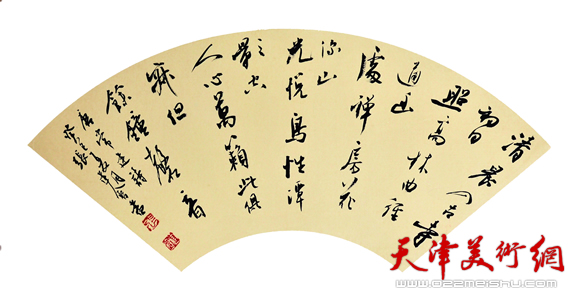 清晨入古寺
初日
照高林曲徑
通幽
處禅房花
深山
光悦鳥性潭
影空
人心萬籟此俱
寂但
餘鐘磬音
唐常建詩
天津美術網
www.022meishu.com